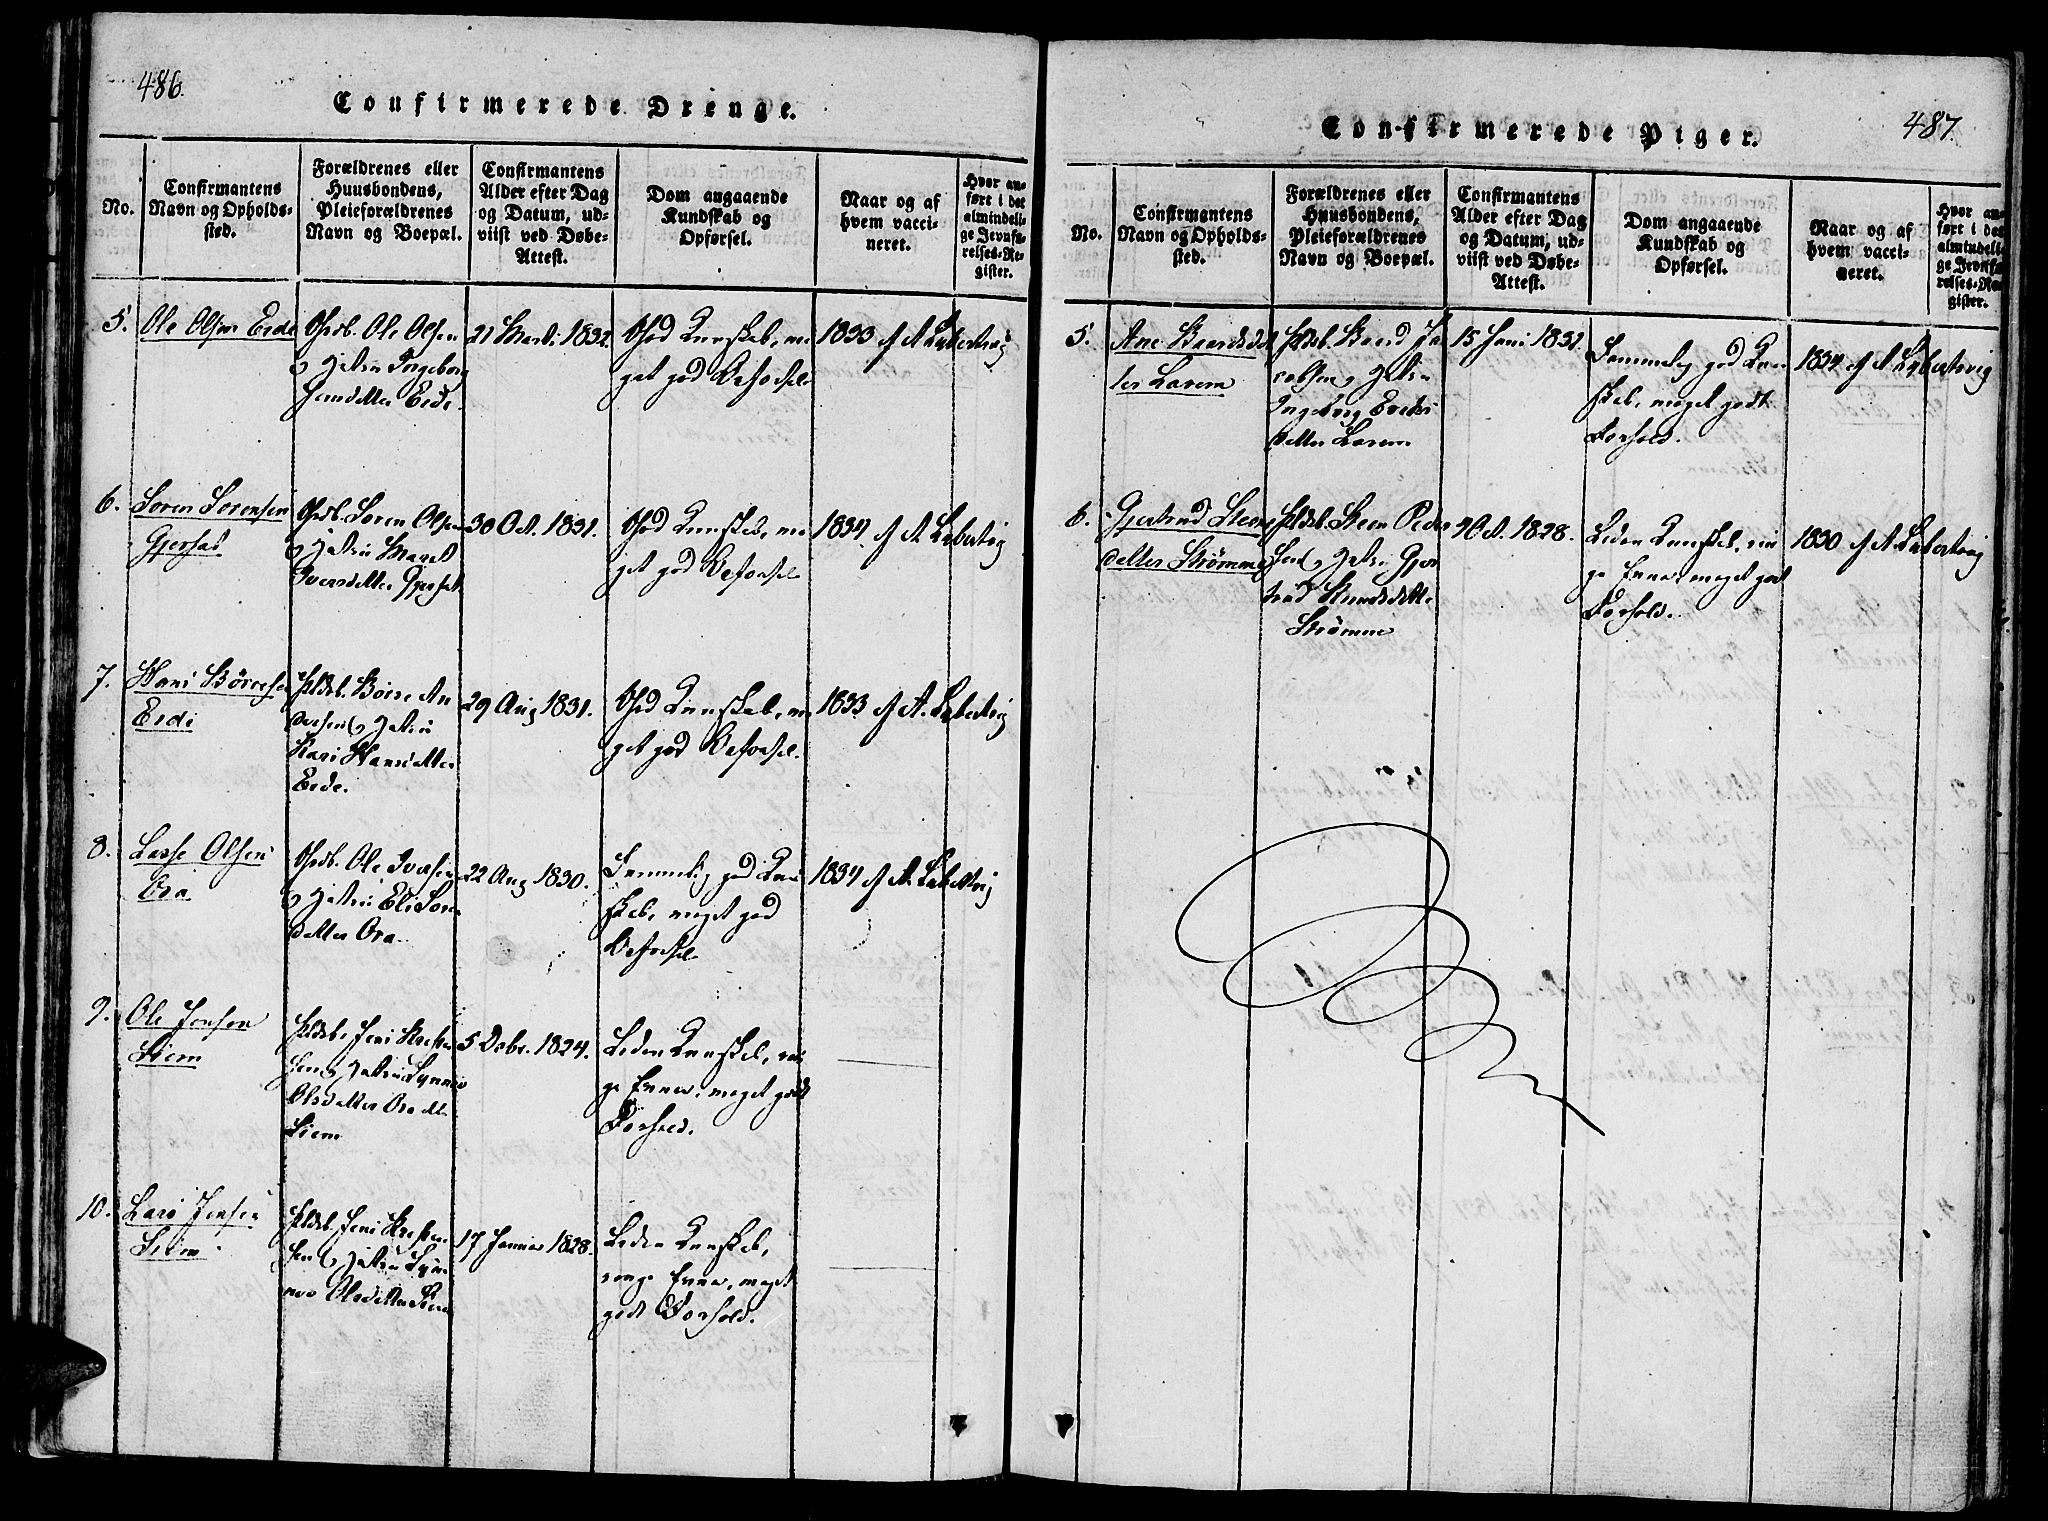 486.
Confirmerede Drenge.
No.
Confirmantens
Navn og Opholds-
sted.
Forældrenes eller
Huusbondens,
Pleieforældrenes
Navn og Boepæl.
Confirmantens
Alder efter Dag
og Datum, ud-
viist ved Døbe-
Attest.
Dom angaaende
Kundskab og
Opførsel.
Naar og af
hvem vacci-
neret.
Hvor an-
ført i det
almindeli-
ge Jevnfø-
relses-Re-
gister.
5.
Ole Olsen Eide
Grdb. Ole Olsen
og Hustru Ingeborg
Eide
21 Mart. 1832.
God Kunskab, me
get god Opførsel.
1833 af A. Labertvig
6.
Søren Sørensen
Gjersat
Grdb. Søren Olsen
og Hustru Maret
Iversdatter Gjerset
30 Oct. 1831.
God Kunskab, me
get god Opførsel
1834 af A. Labertvig
7.
Hans Børresen
Eide
Huusb. Børre An
dersen og Hustru
Kari Hansdatter
Eide.
29 Aug 1831.
God Kunskab, me
get god Opførsel.
1833 af A. Labertvig
8.
Lasse Olsen
Ora
Grdb. Ole Iversen
og Hustru Eli Lars
datter Ora
22 Aug 1830.
Temmelig god Kun
skab, meget god
Opførsel
1834 af A. Labertvig
9.
Ole Jensen
Siem
Huusb. Jens
sen og Hustru Synnev
Olsdatter
Siem
5 Decbr. 1824.
Liden Kunskab, rin
ge Evner, meget godt
Forhold.
10.
Lars Jensen
Siem
Huusb. Jens
sen og Hustru Syn
nev Olsdatter Siem
17 Januar 1828.
Liden Kunskab,
ringe Evner, meget
godt Forhold.
487.
Confirmerede Piger.
No.
Confirmantens
Navn og Opholds-
sted.
Forældrenes eller
Huusbondens,
Pleieforældrenes
Navn og Boepæl.
Confirmantens
Alder efter Dag
og Datum, ud-
viist ved Døbe-
Attest.
Dom angaaende
Kundskab og
Opførsel.
Naar og af
hvem vacci-
neret.
Hvor an-
ført i det
almindeli-
ge Jevnfø-
relses-Re-
gister.
5.
Ane Baardsdat
ter Larem
Huusb. Baard Ja
cobsen og Hustru
Ingeborg
datter Larem
15 Juni 1831.
Temmelig god Kun
skab, meget godt
Forhold.
1834 af A. Labertvig
6.
Gjertrud Steens
datter Strømme
Huusb. Steen Peder
sen og Hustru Gjer
trud Knudsdatter
Strømme
9 Oct. 1828.
Liden Kunskab, rin
ge Evner, meget godt
Forhold.
1830 af A. Labertvig